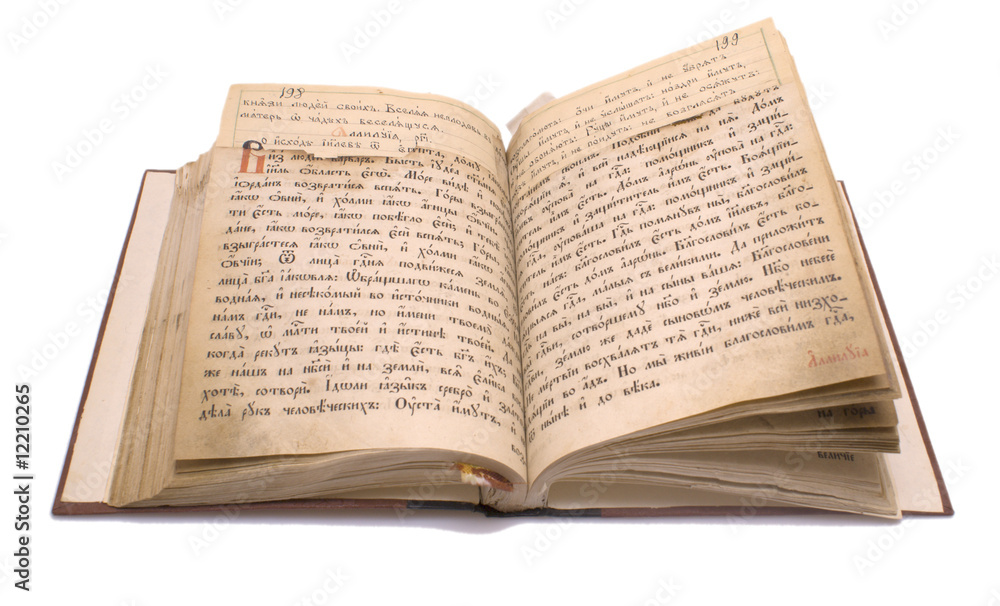 198
кнѧзи людей своихъ. Вселѧѧ неплодовь въ
матерь ѿ чадѣхъ веселѧщусѧ.
Аллилуіа, рг҃і
Во исходѣ ін҃левѣ ѿ египта, дому
из людій варваръ. Бысть іудеа ст҃ынѧ
ійль ѡбласть егѡ. Море видѣ и
іѡрданъ возвратисѧ вспѧть. Горы взыграш
ꙗкѡ ѻвни, и холми ꙗкѡ агнцы ѻвчіи
ти есть море, ꙗкѡ побѣгло еси; и тебе
дане, ꙗкѡ возвратисѧ еси вспѧть; Горы
взыграстесѧ ꙗкѡ ѻвни, и холми ꙗкѡ
ѻвчіи; Ѿ лица гд҇нѧ подвижесѧ землѧ
лица бг҃а іакѡвлѧ: Ѡбращшагѡ камень во
воднаѧ, и несѣкомый во источники водны
намъ гд҇и, не намъ, но имени твоему
славу, ѡ мл҇ти твоей и истинѣ твоей. Да
когда рекутъ ꙗзыцы: гдѣ есть бг҃ъ ихъ
же нашъ на нб҃си и на земли, всѧ елика
хотѣ, сотвори. Ідоли ꙗзыкъ сребро и зла
дѣла рукъ человѣческихъ: Оуста имутъ,
199
Очи имутъ, и не ꙋзрѧтъ
имутъ, и не услышатъ: ноздри имутъ,
и не обонѧютъ: Руцы имутъ, и не осѧжутъ:
и не пойдутъ: не возгласѧтъ
своимъ. Подобни будутъ
и вси надѣющіисѧ на нѧ. Домъ
ійлевъ упова на гд҇а: помощникъ и защи-
титель имъ есть. Домъ аарѡнь упова на гд҇а:
помощникъ и защититель имъ есть. Боѧщіи-
сѧ гд҇а, уповаша на гд҇а: помощникъ и защит
имъ есть. Гд҇ь помѧнувъ ны, благословилъ
насъ: благословилъ есть домъ ійлевъ, благо-
вилъ есть домъ аарѡнь. Благословилъ есть бо-
ѧщыѧсѧ гд҇а, малыѧ съ великими. Да приложитъ
на вы, и на сыны вашѧ: Благословени
гд҇ви, сотворшему нб҃о и землю. Нб҃о небесе
землю же даде сыновѡмъ человѣческимъ.
Не мертвіи восхвалѧтъ тѧ гд҇и, ниже вси низхо-
дѧщіи во адъ. Но мы живіи благословимъ гд҇а,
ѿ нынѣ и до вѣка.
Аллилуіа
на горы
величіе
Adobe Stock | #12210265